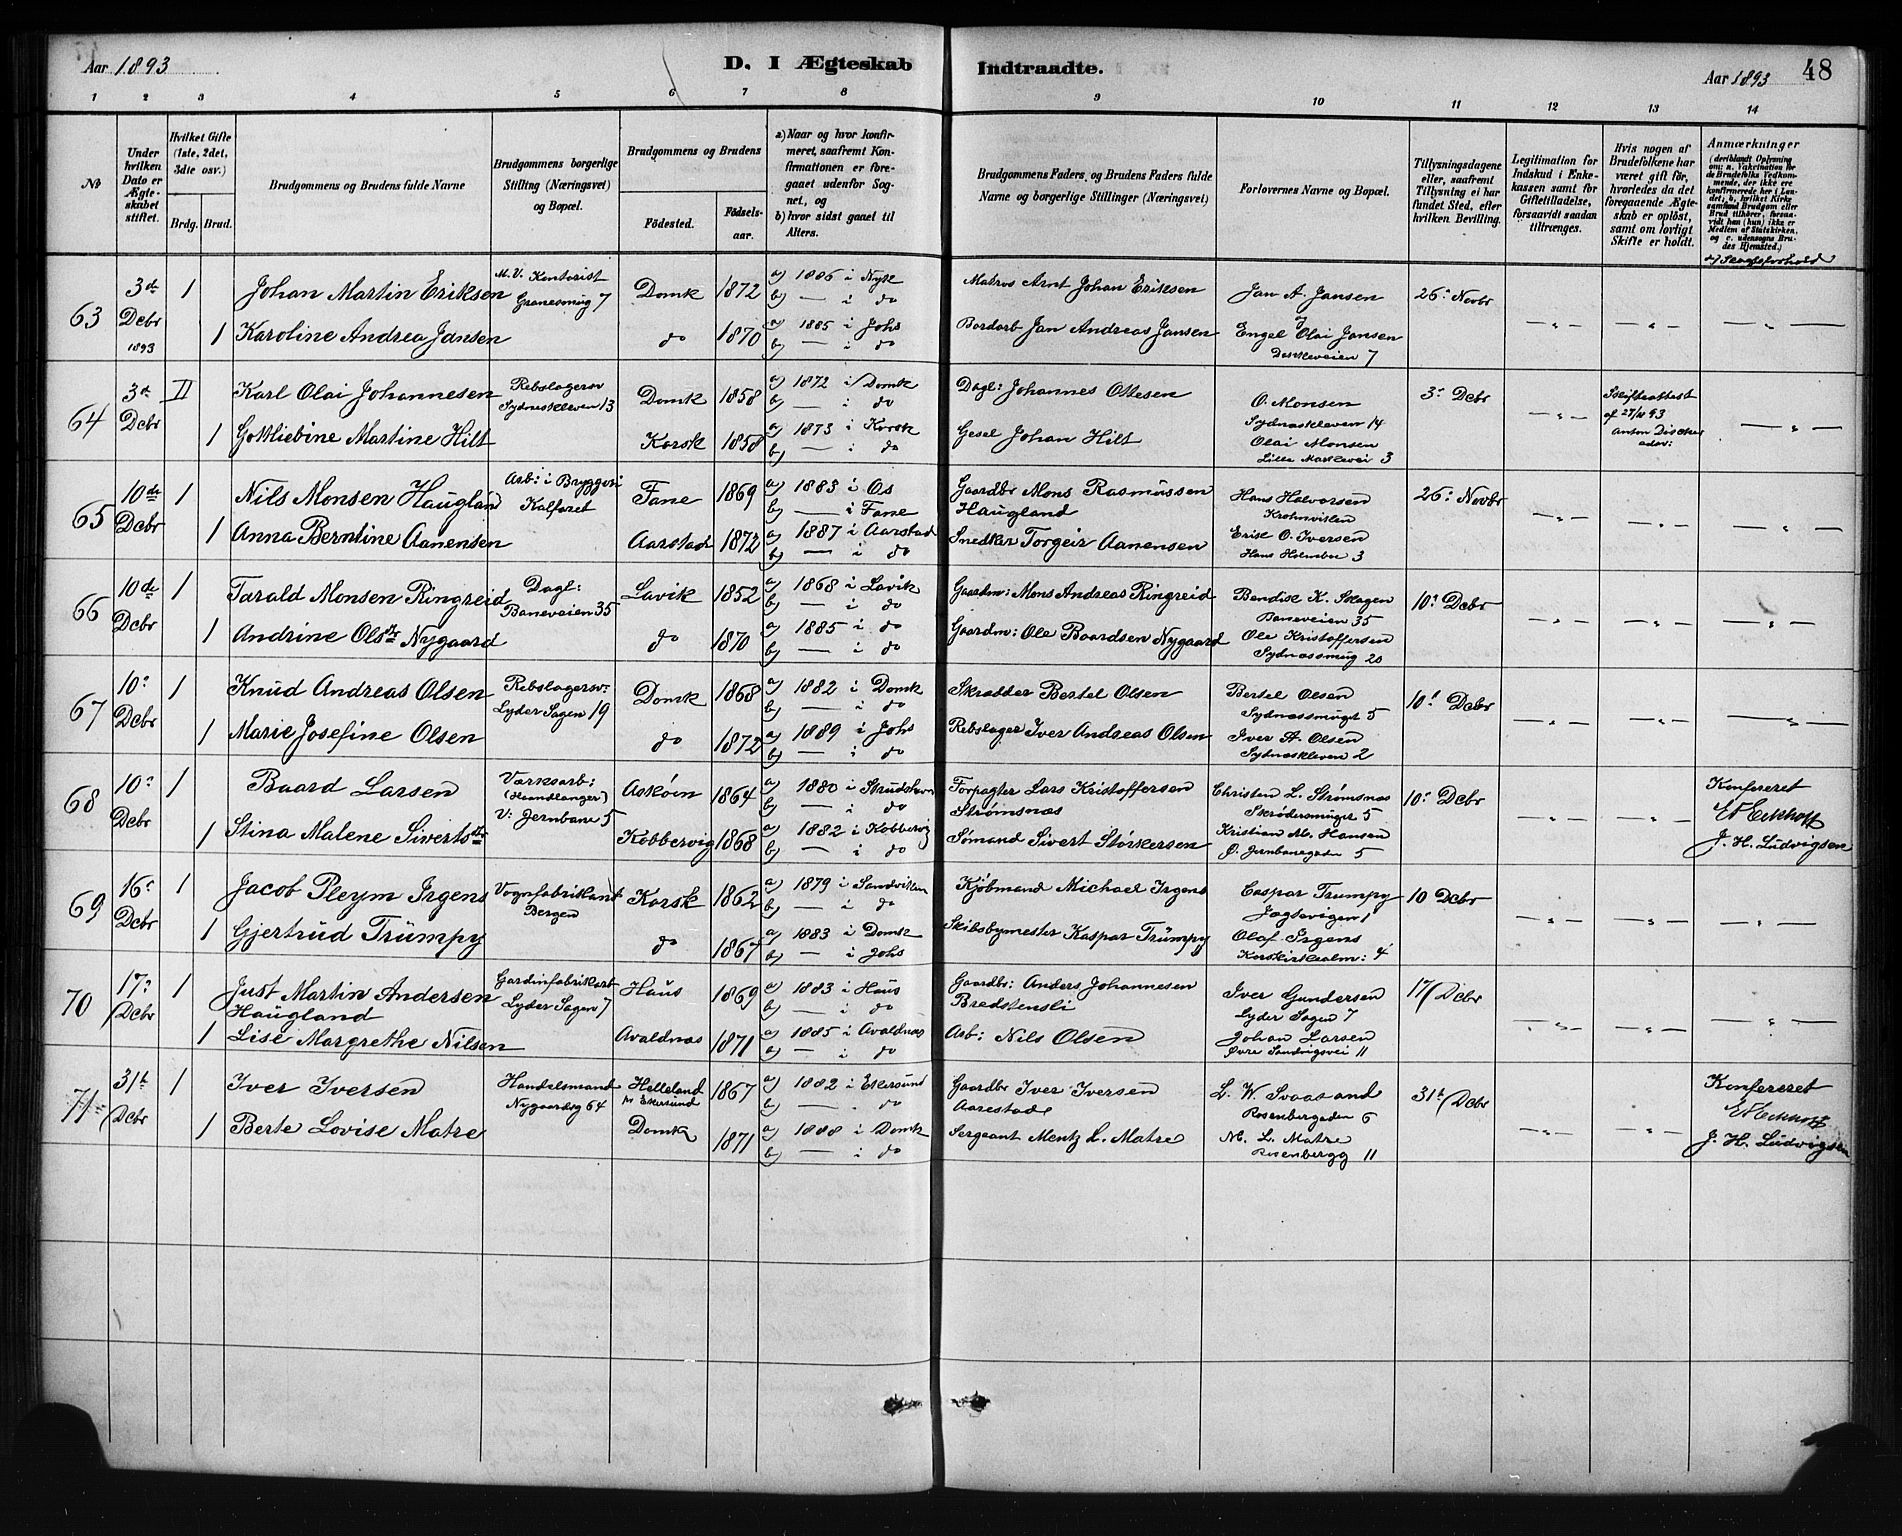 Aar 1893
D. I Ægteskab Indtraadte.
Aar 1893
48
1 2 3 4 5 6 7 8 9 10 11 12 13 14
№
Under hvilken Dato er Ægteskabet stiftet.
Hvilket Gifte (1ste, 2det, 3die osv.)
Brdg. Brud.
Brudgommens og Brudens fulde Navne
Brudgommens borgerlige Stilling (Næringsvei) og Bopæl.
Brudgommens og Brudens
Fødested. Fødselsaar.
a) Naar og hvor konfirmeret, saafremt Konfirmationen er foregaaet udenfor Sognet, og
b) hvor sidst gaaet til Alters.
Brudgommens Faders og Brudens Faders fulde Navne og borgerlige Stillinger (Næringsvei)
Forlovernes Navne og Bopæl.
Tillysningsdagene eller, saafremt Tillysning ei har fundet Sted, efter hvilken Bevilling.
Legitimation for Indskud i Enkekassen samt for Giftetilladelse, forsaavidt saadan tiltrænges.
Hvis nogen af Brudefolkene har været gift før, hvorledes da det foregaaende Ægteskab er opløst, samt om lovligt Skifte er holdt.
Anmærkninger
(deriblandt Oplysning om: a. Vakcination for de Brudefolks Vedkommende, der ikke ere konfirmerede her i Landet; b. hvilket Kirkesamfund Brudgom eller Brud tilhører, forsaavidt han (hun) ikke er Medlem af Statskirken, og c. udensogns Brudes Hjemsted.)
63 3de Dcbr 1893 1 Johan Martin Eriksen M. V. Kontorist Granesmug 7 Domk 1872 a) 1886 i Nyk b) — i do Matros Arnt Johan Eriksen Jan A. Jansen 26: Novbr
1 Karoline Andrea Jansen do 1870 a) 1885 i Johs b) — i do Bordarb Jan Andreas Jansen Engel Olai Jansen 7
64 3de Dcbr II Karl Olai Johannesen Rebslagersv Sydneskleven 13 Domk 1858 a) 1872 i Domk b) — i do Dagl: Johannes Ottesen O. Monsen Sydnæskleven 14 3: Dcbr Skifteattest af 27/11 93
1 Gottliebine Martine Hilt Korsk 1858 a) 1873 i Korsk b) — i do Gesel Johan Hilt Olai Monsen Lille Markevei 3
65 10de Dcbr 1 Nils Monsen Haugland Arb: i Bryggeri Kalfaret Fane 1869 a) 1883 i Os b) — i Fane Gaardbr Mons Rasmussen Haugland Hans Halvorsen Krohnviken 26: Novbr
1 Anna Berntine Aanensen Aarstad 1872 a) 1887 i Aarstad b) — i do Snedker Torgeir Aanensen Erik O. Iversen Hans Holmboe 3
66 10de Dcbr 1 Tarald Monsen Ringreid Dagl: Baneveien 35 Lavik 1852 a) 1868 i Lavik b) — i do Gaardm: Mons Andreas Ringreid Bendik K. Skagen Baneveien 35 10: Dcbr
1 Andrine Olsdtr Nygaard do 1870 a) 1885 i do b) — i do Gaardm: Ole Baardsen Nygaard Ole Kristoffersen Sydnæssmug 20
67 10: Dcbr 1 Knud Andreas Olsen Rebslagersv: Lyder Sagen 19 Domk 1868 a) 1882 i Domk b) — i do Skrædder Bertel Olsen Bertel Olsen Sydnæssmuget 5 10: Dcbr
1 Marie Josefine Olsen do 1872 a) 1889 i Johs b) — i do Rebslager Iver Andreas Olsen Iver A. Olsen Sydnæskleven 2
68 10: Dcbr 1 Baard Larsen Værksarb: (Haandlanger) V: Jernbane 5 Askøen 1864 a) 1880 i b) — i do Forpagter Lars Kristoffersen Strømsnæs Christen L. Strømsnæs Skrødersmuget 5 10: Dcbr Konfereret
1 Stina Malene Sivertsdtr Kobbervig 1868 a) 1882 i Kobbervig b) — i do Sømand Sivert Størkersen Kristian M. Hansen Ø. Jernbanegaden 5 J. H. Ludvigsen
69 16: Dcbr 1 Jacob Pleym Irgens Vognfabrikant Bergen Korsk 1862 a) 1879 i Sandviken b) — i do Kjøbmand Michael Irgens Caspar Trumpy Jægtevigen 1 10 Dcbr
1 Gjertrud Trümpy do 1867 a) 1883 i Domk b) — i Johs Skibsbymester Kaspar Trümpy Olaf Irgens Korskirkealm: 4
70 17: Dcbr 1 Just Martin Andersen Haugland Gardinfabrikarb Lyder Sagen 7 Haus 1869 a) 1883 i Haus b) — i do Gaardbr: Anders Johannesen Bredstensli Iver Gundersen Lyder Sagen 7 17/Dcbr
1 Lise Margrethe Nilsen Avaldnæs 1871 a) 1885 i Avaldnæs a) — i do Arb: Nils Olsen Johan Larsen Øvre Sandvigsvei 11
71 31te Dcbr 1 Iver Iversen Handelsmand Nygaardsg 64 Helleland pr Ekersund 1867 a) 1882 i Ekersund b) — do Gaardbr Iver Iversen Aarestad L. W. Svaasand Rosenbergaden 6 31te/Dcbr Konfereret
1 Berte Lovise Matre Domk 1871 a) 1888 i Domk b) — i do Sergeant Mentz L. Matre M. L. Matre Rosenbergg 11 J. H. Ludvigsen